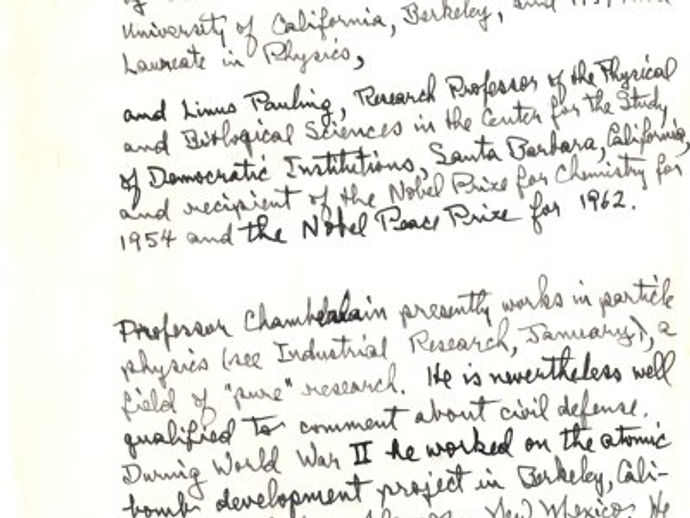 University of California, Berkeley, and
Laureate in Physics,
and Linus Pauling, Research Professor of the Physical
and Biological Sciences in the Center for the Study
of Democratic Institutions, Santa Barbara, California,
and recipient of the Nobel Prize for Chemistry for
1954 and the Nobel Peace Prize for 1962.
Professor Chamberlain presently works in particle
physics (see Industrial Research, January), a
field of "pure" research. He is nevertheless well
qualified to comment about civil defense.
During World War II he worked on the atomic
bomb development project in Berkeley, Cali-
New Mexico. He